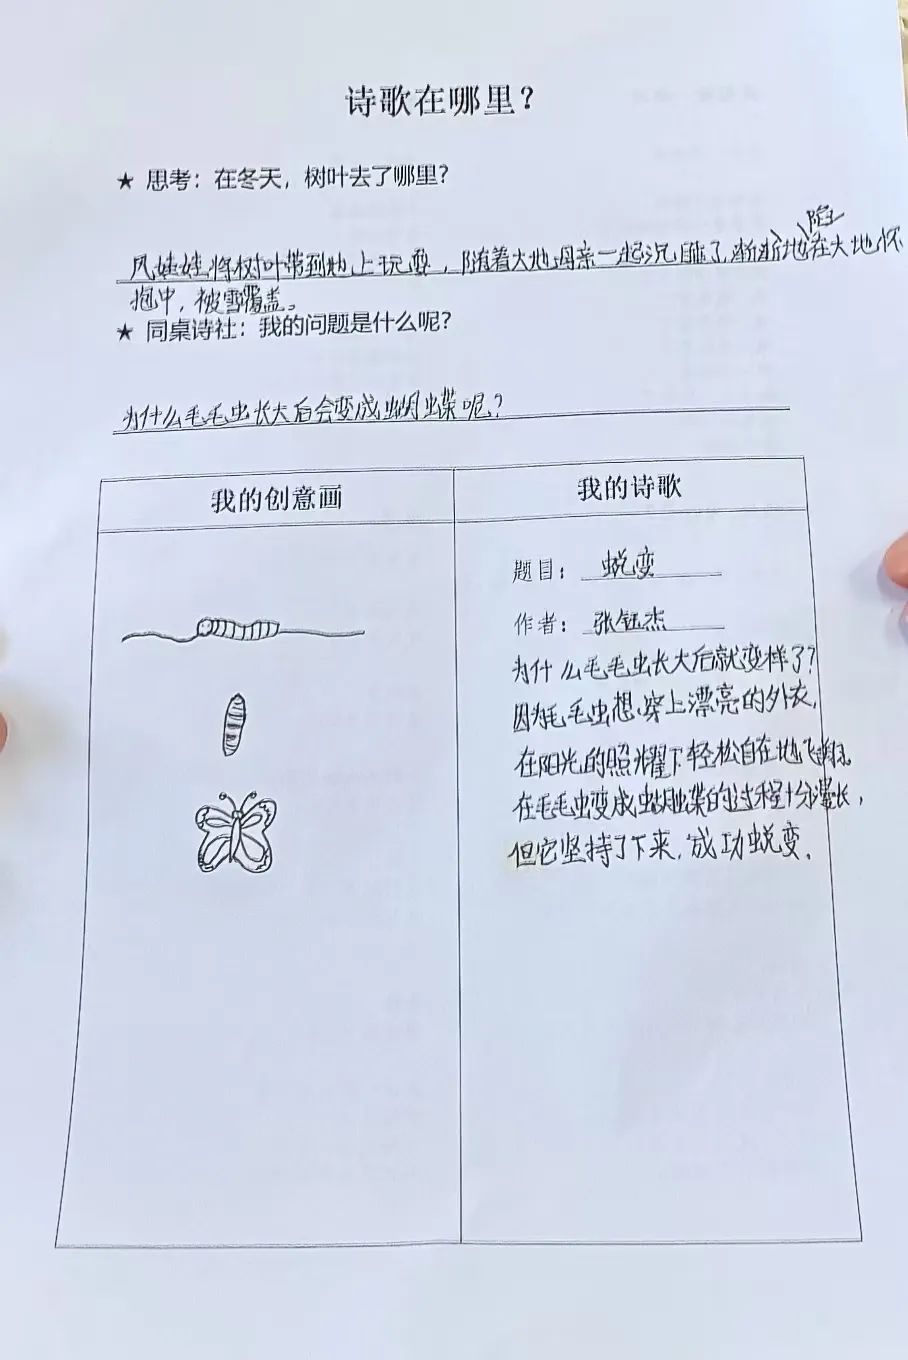 诗歌在哪里?
★ 思考：在冬天，树叶去了哪里?
陷
风娃娃将树叶带到地上玩耍，随着大地母亲一起沉睡了，渐渐地在大地怀
抱中，被雪覆盖。
★ 同桌诗社：我的问题是什么呢?
为什么毛毛虫长大后会变成蝴蝶呢?
我的创意画
我的诗歌
题目：蜕变
作者：张钰杰
为什么毛毛虫长大后就变样了?
因为毛毛虫想穿上漂亮的外衣，
在阳光的照耀下轻松自在地飞翔。
在毛毛虫变成蝴蝶的过程十分漫长，
但它坚持了下来，成功蜕变。